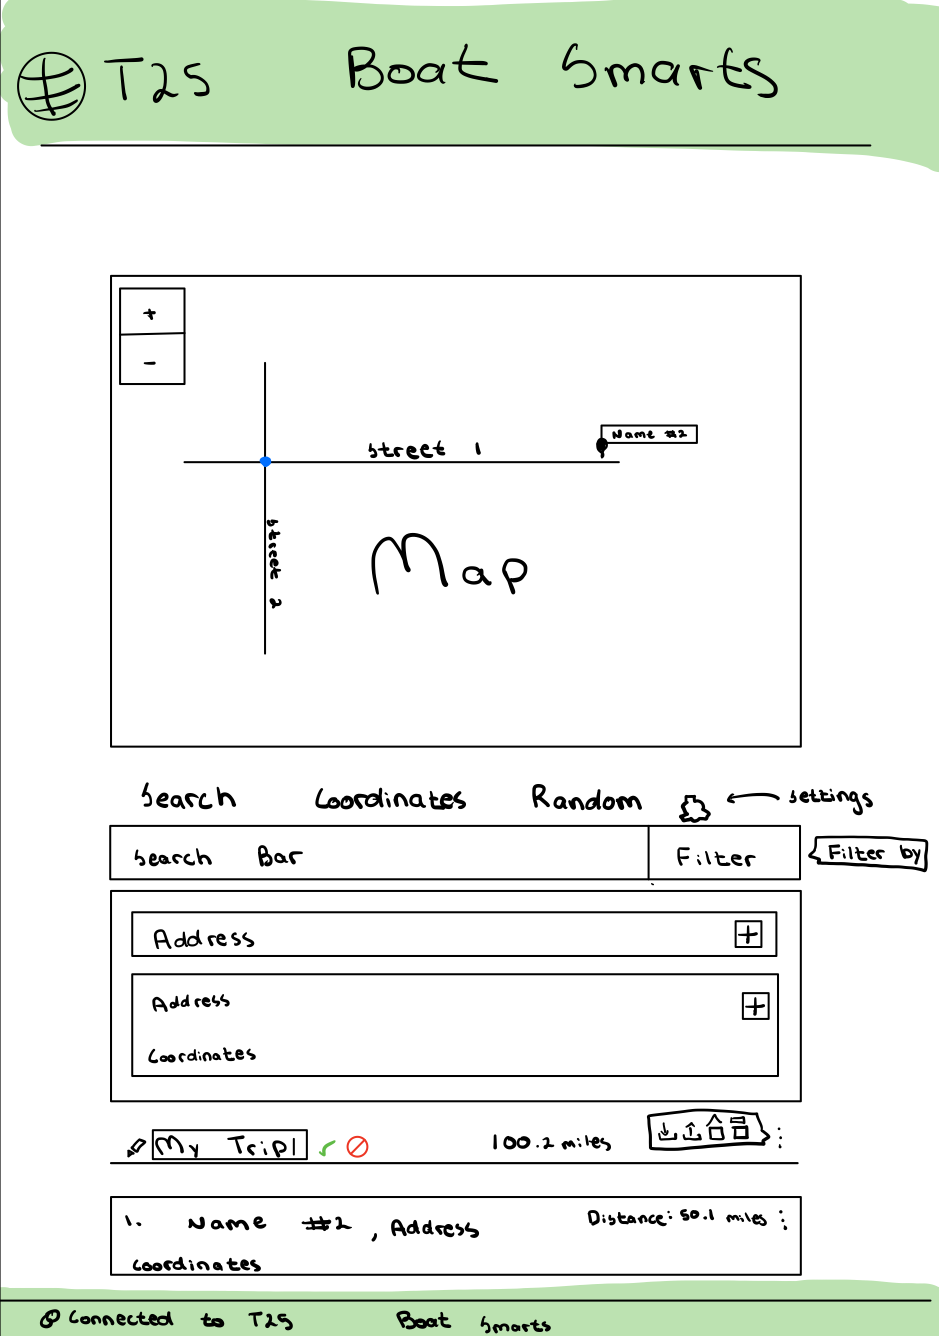 T25 Boat Smarts
+
-
Name #2
Street 1
Street 2
Map
Search Coordinates Random settings
Search Bar Filter Filter by
Address +
Address +
Coordinates
My Trip 100.2 miles
1. Name #2, Address Distance: 50.1 miles
Coordinates
Connected to T25 Boat Smarts